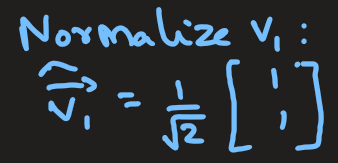 Normalize v₁ :
$\widehat{\overrightarrow{v_1}} = \frac{1}{\sqrt{2}} \begin{bmatrix} 1 \\ 1 \end{bmatrix}$